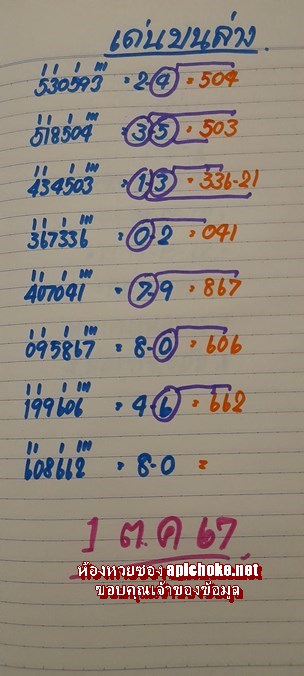 เด่นบนล่าง
530593 = 2-4 = 504
518504 = 3 5 = 503
434503 = 1-3 = 336-21
367336 = 0 2 = 041
407041 = 7-9 = 867
095867 = 8-0 = 606
199606 = 4-6 = 662
608662 = 8-0 =
1 ต.ค 67
ห้องหวยซอง apichoke.net
ขอบคุณเจ้าของข้อมูล